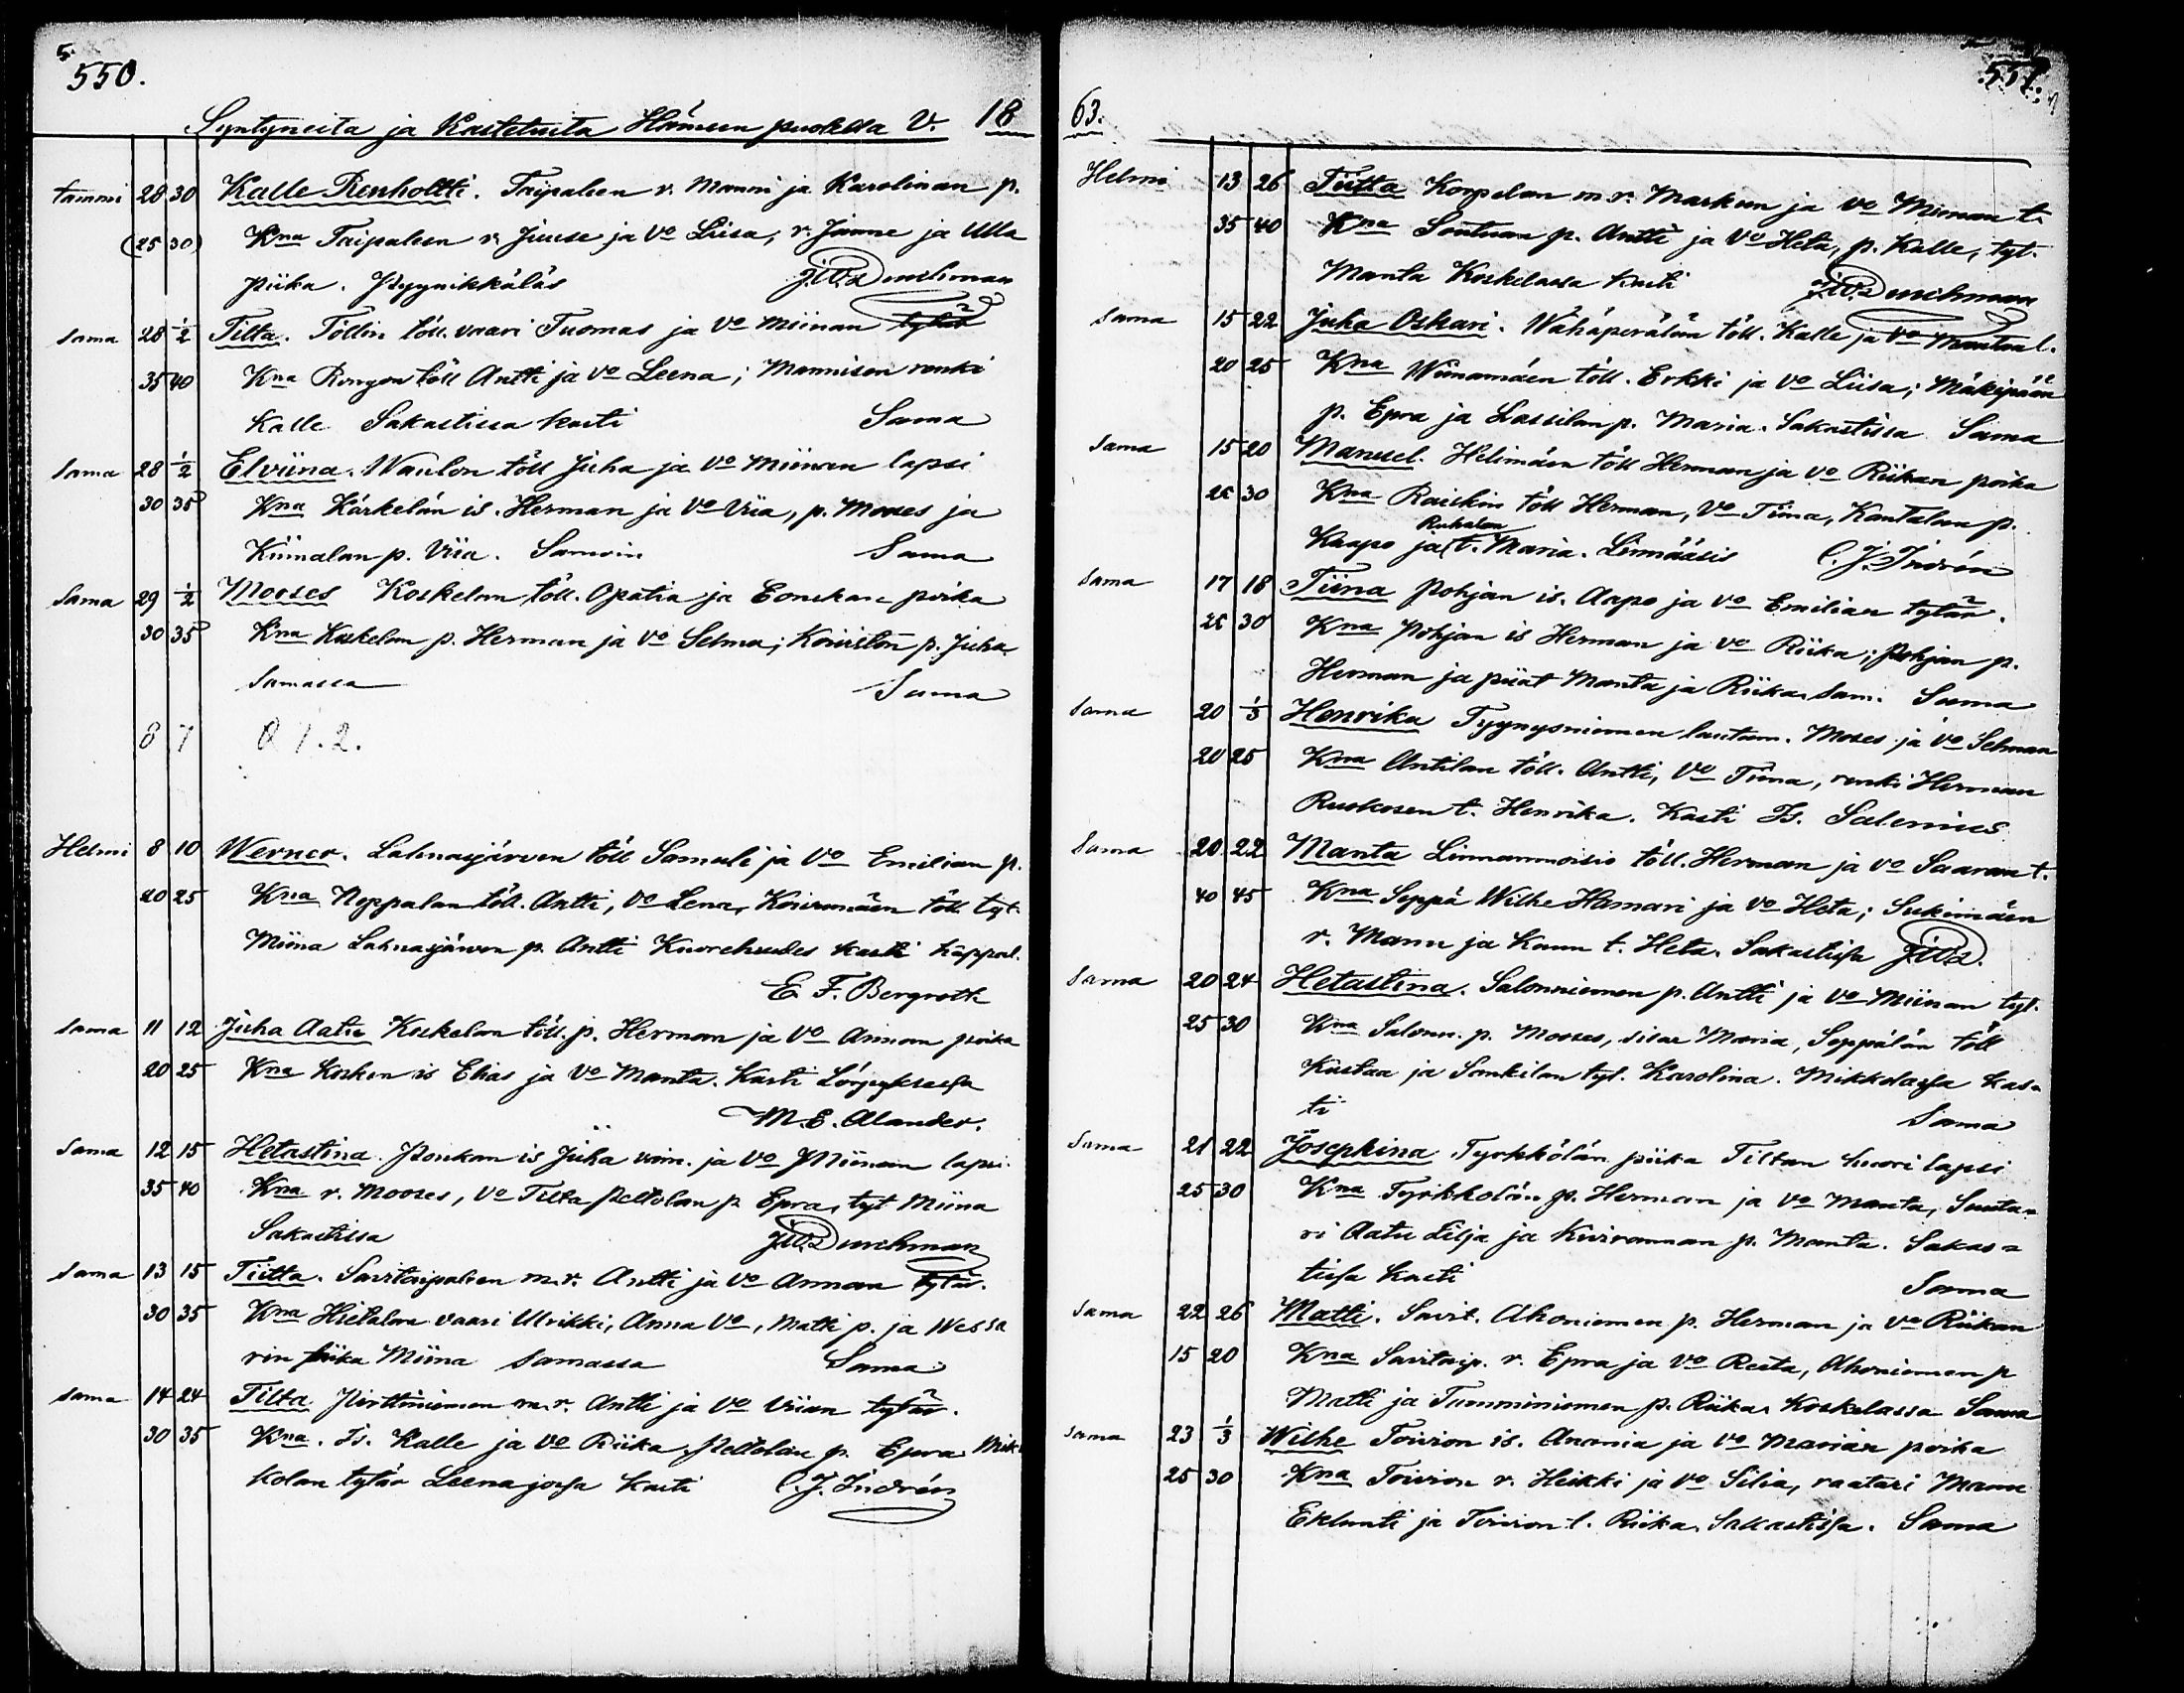 550.
Syntyneitä ja Kastetuita Hämeen puolella V. 18
tammi 28 30 Kalle Renholtti. Taipaleen r. Manni ja Karolinan p.
(25 30) Kna Taipaleen r. Juuse ja Vo Liisa, r. Janne ja Ulla
piika. Pyynikkäläs J.W.Durchman
sama 28 1/2 Tilta. Töllin töll. vaari Tuomas ja Vo Miinan tytär
35 40 Kna Rongon töll Antti ja Vo Leena; Mannisen renki
Kalle Sakastissa kasti Sama
Sama 28 1/2 Elviina. Waulon töll Juha ja Vo Miinan lapsi
30 35 Kna Kärkelän is. Herman ja Vo Viia, p. Mooses ja
Kiimalan p. Viia. Samoin Sama
Sama 29 1/2 Mooses Koskelan töll. Opatia ja Eonikan poika
30 35 Kna Koskelan p. Herman ja Vo Selma; Koiviston p. Juha
Samassa Sama
8 7 Q 1. 2.
Helmi 8 10 Werner. Lahnasjärven töll Samuli ja Vo Emilian p.
20 25 Kna Noppalan töll. Antti, Vo Lena, Koivumäen töll. tyt.
Miina Lahnasjärven p. Antti Kuorehvedes kasti kappal.
E. F. Bergroth
Sama 11 12 Juha Aatu Koskelan töll. p. Herman ja Vo Annan poika
20 25 Kna Kosken is Elias ja Vo Manta. Kasti Längelmessä
M. E. Alander.
Sama 12 15 Hetastina. Ponkan is Juha vain. ja Vo Miinan lapsi.
35 40 Kna r. Mooses, Vo Tilta Peltolan p. Epra, tyt Miina
Sakastissa J.W.Durchman
Sama 13 15 Tiitta. Savitaipaleen m.r. Antti ja Vo Annan tytär.
30 35 Kna Hietalan vaari Ulrikki, Anna Vo, Matti p. ja Wessa
rin piika Miina samassa Sama
sama 14 24 Tilta Pirttiniemen m.r. Antti ja Vo Viian tytär.
30 35 Kna. Is. Kalle ja Vo Riika, Peltolan p. Epra Mik-
kolan tytär Leena jossa kasti C. J. Indrén
63. 551.
Helmi 13 26 Tiitta Korpelan m.r. Markun ja Vo Miinan t.
35 40 Kna Sontuan p. Antti ja Vo Heta, p. Kalle, tyt.
Manta Koskelassa kasti J.W.Durchman
Sama 15 22 Juha Oskari. Wähäperälän töll. Kalle ja Vo Mantan l.
20 25 Kna Wiinamäen töll. Erkki ja Vo Liisa; Mäkipään
p. Epra ja Lassilan p. Maria. Sakastissa Sama
Sama 15 20 Manuel. Helimäen töll Herman ja Vo Riikan poika
25 30 Kna Raiskin töll Herman, Vo Tiina, Kantalan p.
Kaapo ja Ruhalan t. Maria. Linnääsis C. J. Indrén
Sama 17 18 Tiina Pohjan is. Aapo ja Vo Emilian tytär.
25 30 Kna Pohjan is Herman ja Vo Riika; Pohjan p.
Herman ja piiat Manta ja Riika. Sam. Sama
Sama 20 1/3 Henrika Tyynysniemen lautam. Moses ja Vo Selman
20 25 Kna Antilan töll. Antti, Vo Tiina, renki Herman
Ruokosen t. Henrika. Kasti Is. Salenius
Sama 20 22 Manta Linnanmoisio töll. Herman ja Vo Saaran t.
40 45 Kna Seppä Wilhe Hamari ja Vo Heta; Sukimäen
r. Mann ja Kaun t. Heta. Sakastissa J.W.D.
Sama 20 24 Hetastina. Salonniemen p. Antti ja Vo Miinan tyt.
25 30 Kna Salonn. p. Mooses, sisar Maria, Seppälän töll
Kustaa ja Sankilan tyt. Karolina. Mikkolassa kas-
ti Sama
Sama 21 22 Josephina Tyrkkölän piika Tiltan huori lapsi
25 30 Kna Tyrkkölän p. Herman ja Vo Manta, Suuta-
ri Aatu Lilja ja Koivunan p. Manta. Sakas-
tissa kasti Sama
Sama 22 26 Matti. Savit. Ahoniemen p. Herman ja Vo Riikan
15 20 Kna Savitaip. r. Epra ja Vo Reeta, Ahoniemen p
Matti ja Tumminiemen p. Riika. Koskelassa Sama
Sama 23 1/3 Wilhe Toivion is. Anania ja Vo Marian poika
25 30 Kna Toivion r. Heikki ja Vo Silia, raatari Manu
Eklunti ja Toivion t. Riika. Sakastissa. Sama